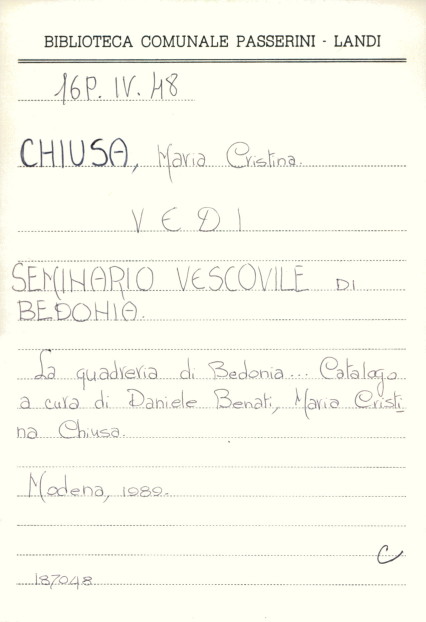 BIBLIOTECA COMUNALE PASSERINI - LANDI
16P. IV. 48
CHIUSA, Maria Cristina.
VEDI
SEMINARIO VESCOVILE DI
BEDONIA.
La quadreria di Bedonia... Catalogo
a cura di Daniele Benati, Maria Cristi
na Chiusa.
Modena, 1989.
C
187048